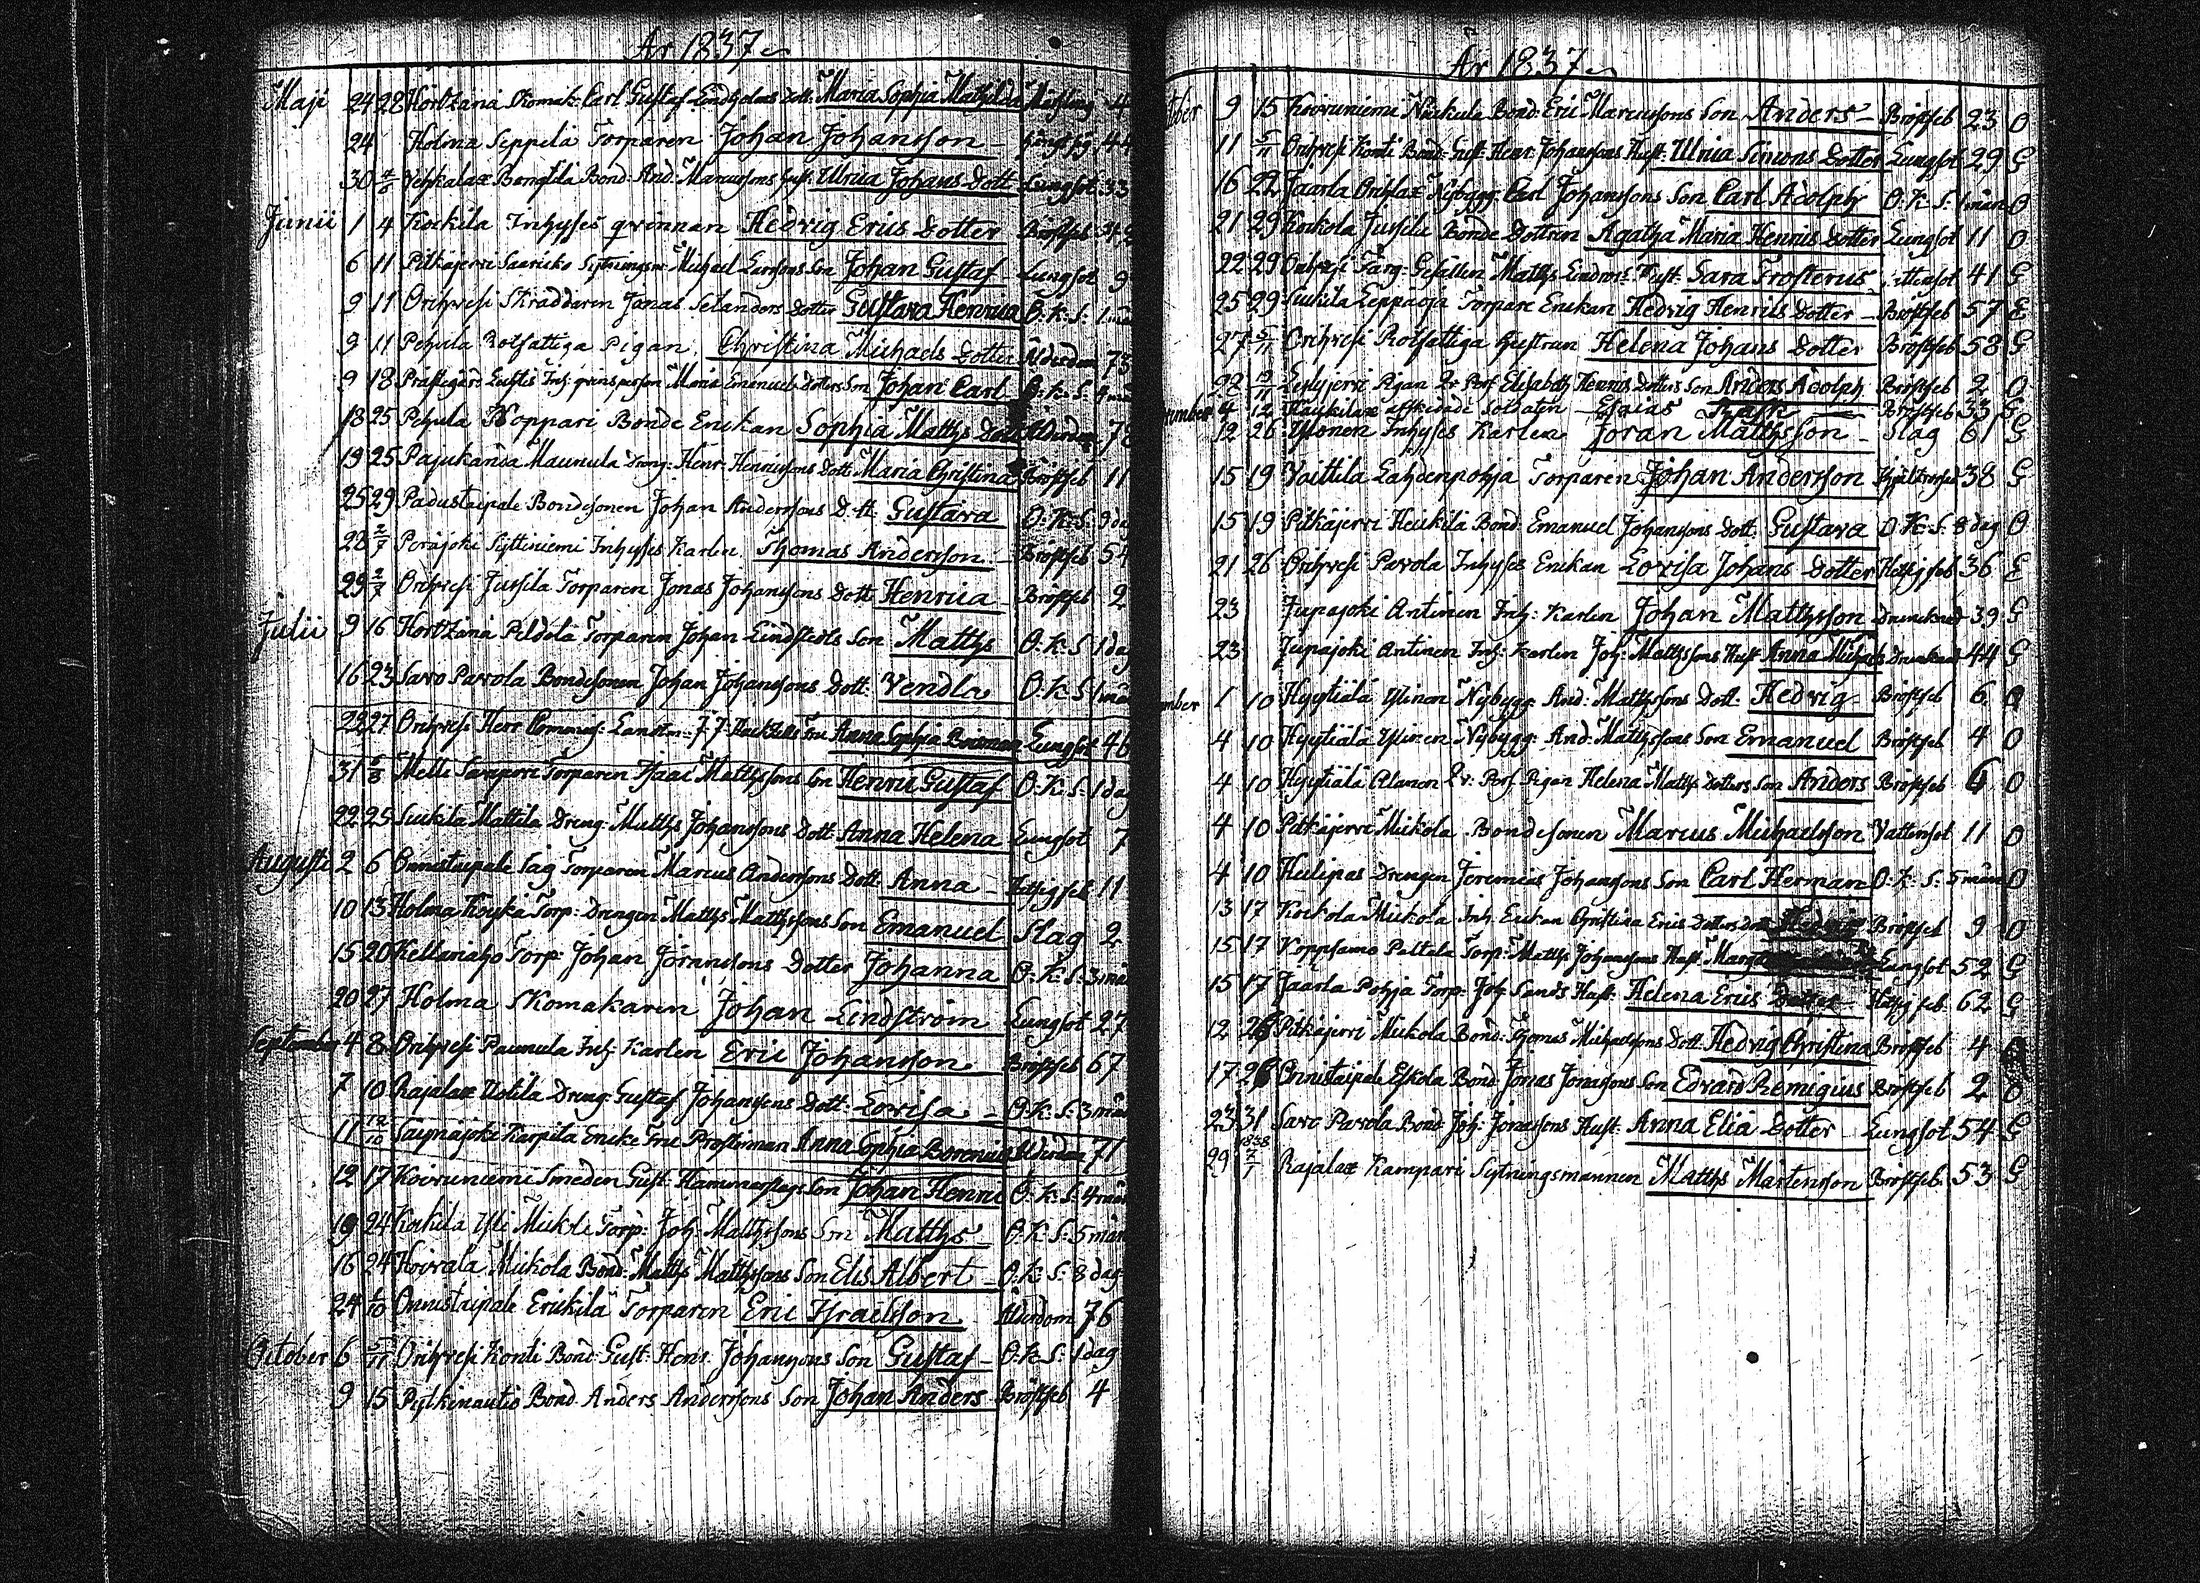 År 1837
Maji 24 28 Hortzana Skomak: Carl Gustaf Lindholms Dott: Maria Sophia Mathilda Mässling 4
24 Holma Seppelä Torparen Johan Johansson 44
30 Vehkalax Bond: And: Marcussons Hust: Ulrica Johans Dott Lungsot 33
Junii 1 4 Kockila Inhyses qvinnan Hedvig Erics Dotter Bröstfeb
6 11 Pitkäjervi Saaricko Sytningsm: Michael Larssons Son Johan Gustaf Lungsot 9
9 11 Orihvesi Skräddaren Jonas Selanders Dotter Gustava Henrica O: K: S: 1 mån
9 11 Pehula Rotfattiga Pigan Christina Michaels Dotter Ålderdom 73
9 18 Prästegård Inh: qvinsperson Maria Emanuels Dotters Son Johan Carl O: K: S:
18 25 Pehula Noppari Bonde Enckan Sophia Matths Dott Ålderdom
19 25 Pajukanda Maunula Dreng: Henr: Henricssons Dott: Maria Christina Bröstfeb 11
25 29 Padustaipale Bondesonen Johan Anderssons Dott Gustava O: K: S: 9 dag
28 2/7 Porajoki Syttiniemi Inhyses Karlen Thomas Andersson Bröstfeb 54
29 2/7 Orihvesi Jussila Torparen Jonas Johanssons Dott Henrica Bröstfeb 2
Julii 9 16 Hortzana Peldola Torparen Johan Lindstedts Son Matths O: K: S 1 dag
16 23 Savo Parvola Bondesonen Johan Johanssons Dott: Vendla O: K: S 1 mån
22 27 Orihvesi Herr Commiss: Landtm: Fru Anna Sophia Lungsot 46
31 6/8 Melli Torparen Isaac Matthssons Son Henric Gustaf O: K: S: 1 dag
22 25 Suckila Mattila Dreng: Matths Johanssons Dott: Anna Helena Lungsot 7
Augusti 2 6 Onnistaipale Torparen Marcus Anderssons Dott: Anna Hetsigfeb 11
10 13 Holma Torp: Drengen Matths Matthssons Son Emanuel Slag 2
15 20 Kellariaho Torp: Johan Jöranssons Dotter Johanna O: K: S: 3 mån
20 27 Holma Skomakaren Johan Lindström Lungsot 27
September 4 8 Orihvesi Paunula Inh: Karlen Eric Johansson Bröstfeb 67
7 10 Rajalax Uotila Dreng: Gustaf Johanssons Dott: Lovisa O: K: S: 3 mån
11 12/10 Saynäjoki Karpila Encke Fru Prostinnan Anna Sophia Borenius Ålderdom 71
12 17 Koivuniemi Smeden Gust: Hammarslags Son Johan Henric O: K: S: 4 mån
19 24 Kockila Yli Mickola Torp: Joh: Matthssons Son Matths O: K: S: 5 mån
16 24 Hoivala Mickola Bond: Matths Matthssons Son Elis Albert O: K: S: 8 dag
24 1/10 Onnistaipale Erickilä Torparen Eric Israelsson Ålderdom 76
October 6 5/11 Orihvesi Konti Bond: Gust: Henr: Johanssons Son Gustaf O: K: S: 1 dag
9 15 Pytkinautio Bond: Anders Anderssons Son Johan Anders Bröstfeb 4
År 1837
9 15 Koivuniemi Bond: Eric Marcussons Son Anders Bröstfeb 23 O
11 5/11 Orihvesi Konti Bond: Gust: Henr: Johanssons Hust: Ulrica Simons Dotter Lungsot 29 G
16 22 Jaarla Nybygg: Carl Johanssons Son Carl Adolph O: K: S: 1 mån O
21 29 Kockola Jussila Bonde Dottren Agatha Maria Henrics Dotter Lungsot 11 O
22 29 Orihvesi Färg: Gesällen Matths Lindroos Hust: Sara Frosterus 41 G
25 29 Suckila Leppäoja Torpare Enckan Hedvig Henrics Dotter Bröstfeb 57 E
27 5/11 Orihvesi Rotfattiga Hustrun Helena Johans Dotter Bröstfeb 58 G
22 Pigan Qv: Pers: Elisabeth Henrics Dotters Son Anders Adolph Bröstfeb 2 O
4 12 Haukilax afskedade Soldaten Esaias Rask Bröstfeb 33 G
12 26 Ylönen Inhyses Karlen Jöran Matthsson Slag 61 G
15 19 Voittila Lahdenpohja Torparen Johan Andersson 38 G
15 19 Pitkäjervi Heickilä Bond: Emanuel Johanssons Dott: Gustava O: K: S: 8 dag O
21 26 Orihvesi Parola Inhyses Enckan Lovisa Johans Dotter Hetsigfeb 36 E
23 Jupajoki Antinen Inh: Karlen Johan Matthsson Drunknad 39 G
23 Jupajoki Antinen Inh: Karlen Joh: Matthssons Hust: Anna Michels Drunknad 44 G
1 10 Hyytiälä Ylinen Nybygg: And: Matthssons Dott: Hedvig Bröstfeb 6 O
4 10 Hyytiälä Ylinen Nybygg: And: Matthssons Son Emanuel Bröstfeb 4 O
4 10 Hyytiälä Alanen Qv: Pers: Pigan Helena Matths Dotters Son Anders Bröstfeb 6 O
4 10 Pitkäjervi Mickola Bondesonen Marcus Michaelsson Vattensot 11 O
4 10 Hulipas Drengen Jeremias Johanssons Son Carl Herman O: K: S: 5 mån O
13 17 Kockola Mickola Inh: Enckan Christina Erics Dotters Bröstfeb 9 O
15 17 Koppsamo Pettala Torp: Matths Johanssons Hust: Lungsot 52 G
15 17 Jaarla Pohja Torp: Joh: Sands Hust: Helena Erics Dotter Hetsig feb: 62 G
12 26 Pitkäjervi Mickola Bond: Thomas Michaelssons Dott: Hedvig Christina Bröstfeb 4
17 26 Onnistaipale Eskola Bond: Jonas Jonassons Son Edvard Remigius Bröstfeb 2 O
23 31 Savo Parvola Bond: Joh: Jonassons Hust: Anna Elia Dotter Lungsot 54 G
29 1838 7/1 Rajalax Kampari Sytningsmannen Matths Mårtensson Bröstfeb: 53 G